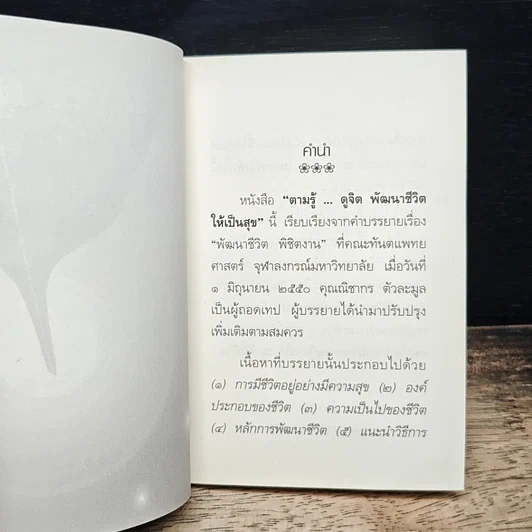 คำนำ
หนังสือ “ตามรู้ ... ดูจิต พัฒนาชีวิต
ให้เป็นสุข” นี้ เรียบเรียงจากคำบรรยายเรื่อง
“พัฒนาชีวิต พิชิตงาน” ที่คณะทันตแพทย
ศาสตร์ จุฬาลงกรณ์มหาวิทยาลัย เมื่อวันที่
๑ มิถุนายน ๒๕๕๐ คุณณิชากร ตัวละมูล
เป็นผู้ถอดเทป ผู้บรรยายได้นำมาปรับปรุง
เพิ่มเติมตามสมควร
เนื้อหาที่บรรยายนั้นประกอบไปด้วย
(๑) การมีชีวิตอยู่อย่างมีความสุข (๒) องค์
ประกอบของชีวิต (๓) ความเป็นไปของชีวิต
(๔) หลักการพัฒนาชีวิต (๕) แนะนำวิธีการ